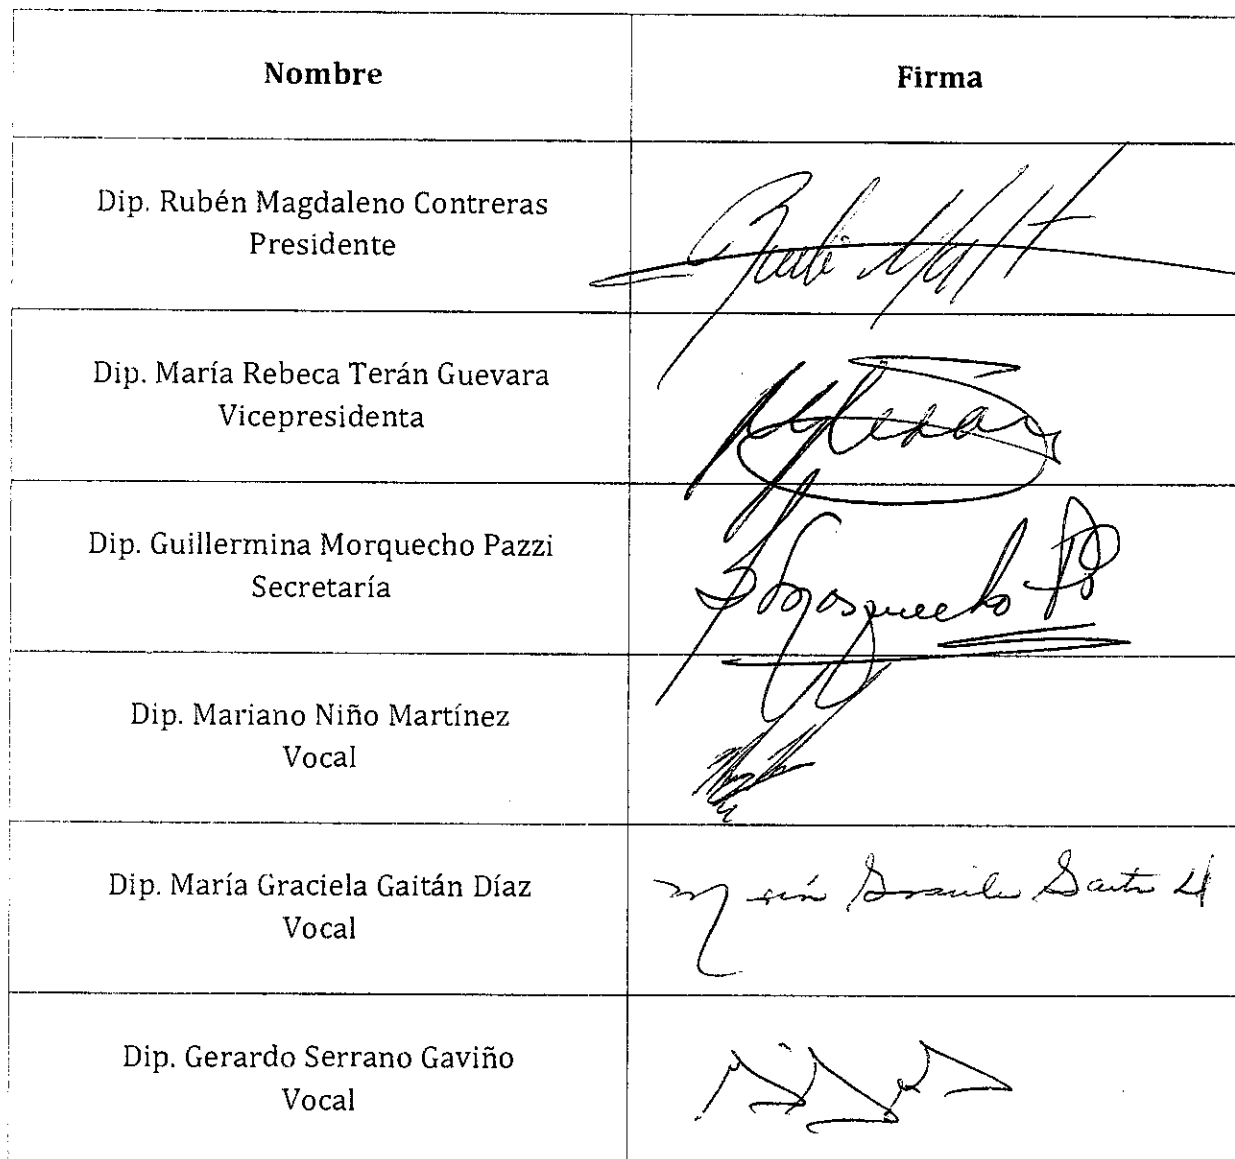 Nombre
Firma
Dip. Rubén Magdaleno Contreras
Presidente
Dip. María Rebeca Terán Guevara
Vicepresidenta
Dip. Guillermina Morquecho Pazzi
Secretaría
Morquecho
Dip. Mariano Niño Martínez
Vocal
Dip. María Graciela Gaitán Díaz
Vocal
María Graciela
Dip. Gerardo Serrano Gaviño
Vocal